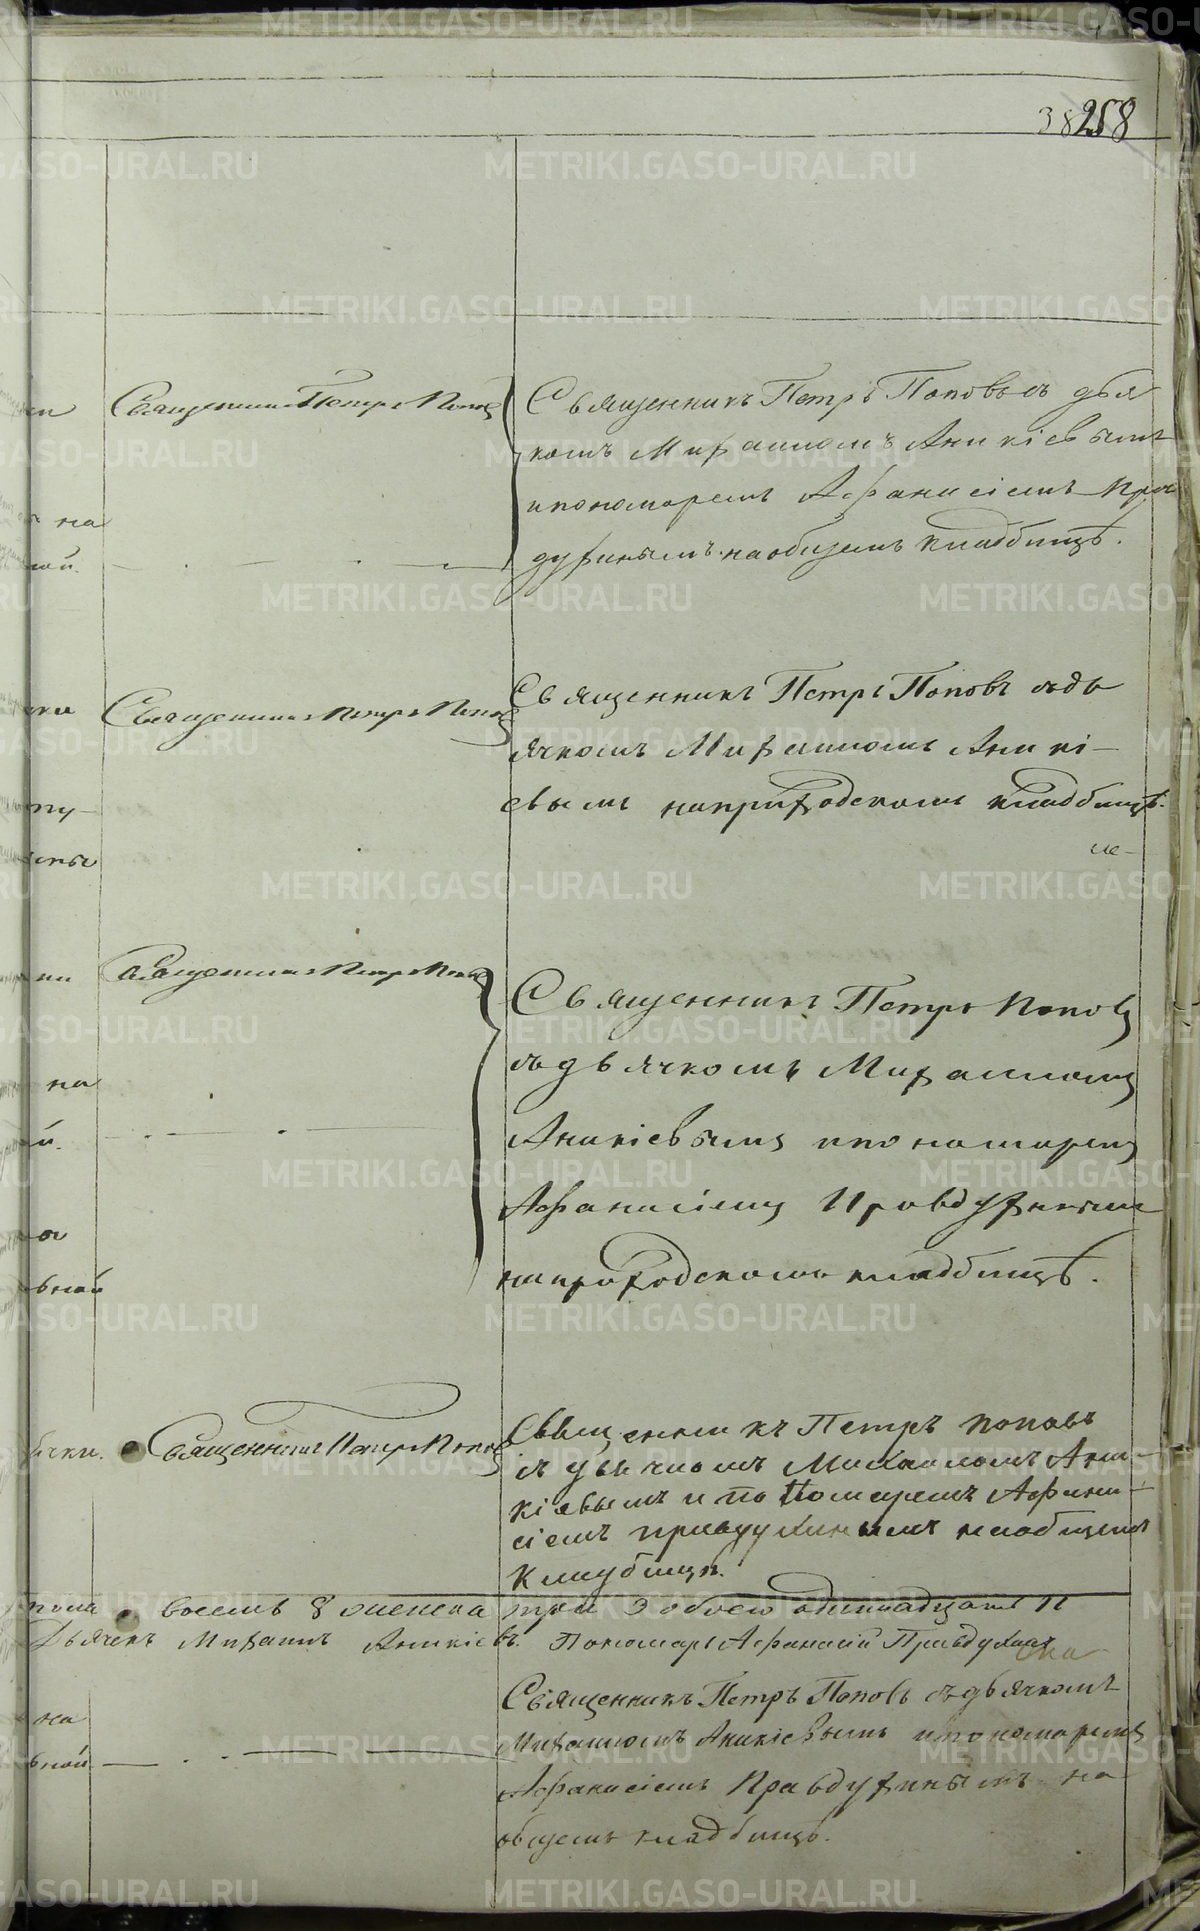 38 258
Священник Петръ Поповъ
Священникъ Петръ Поповъ съ дья
комъ Михаиломъ Аникіевымъ
и пономаремъ Афанасіемъ Прав
духинымъ на общемъ кладбищѣ.
на
ной.
Священникъ Петръ Поповъ
Священникъ Петръ Поповъ съ дь
ячкомъ Михаиломъ Аникі-
евымъ на приходскомъ кладбищѣ.
Священникъ Петръ Поповъ
Священникъ Петръ Поповъ
съ дьячкомъ Михаиломъ
Аникіевымъ и пономаремъ
Афанасіемъ Правдухинымъ
на приходскомъ кладбищѣ.
на
й.
вной
Священникъ Петръ Поповъ
Священникъ Петръ Поповъ
съ дьячкомъ Михаиломъ Ани-
кіевымъ и пономаремъ Афана-
сіемъ Правдухинымъ на общемъ
кладбищѣ.
восемь 8 женска три 3 обоего одиннадцать 11
Дьячекъ Михаилъ Аникіевъ. Пономарь Афанасій Правдухинъ
Священникъ Петръ Поповъ съ дьячкомъ
Михаиломъ Аникіевымъ и пономаремъ
Афанасіемъ Правдухинымъ на
общемъ кладбищѣ.
на
вной
METRIKI.GASO-URAL.RU